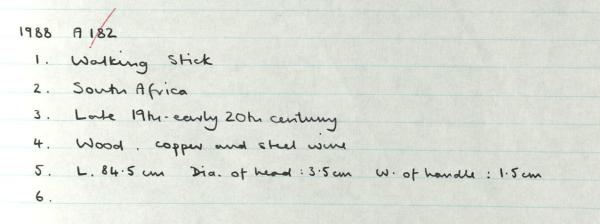 1988 A 182
1. Walking stick
2. South Africa
3. Late 19th-early 20th century
4. Wood. copper and steel wire
5. L. 84.5 cm Dia. of head: 3.5cm W. of handle: 1.5cm
6.